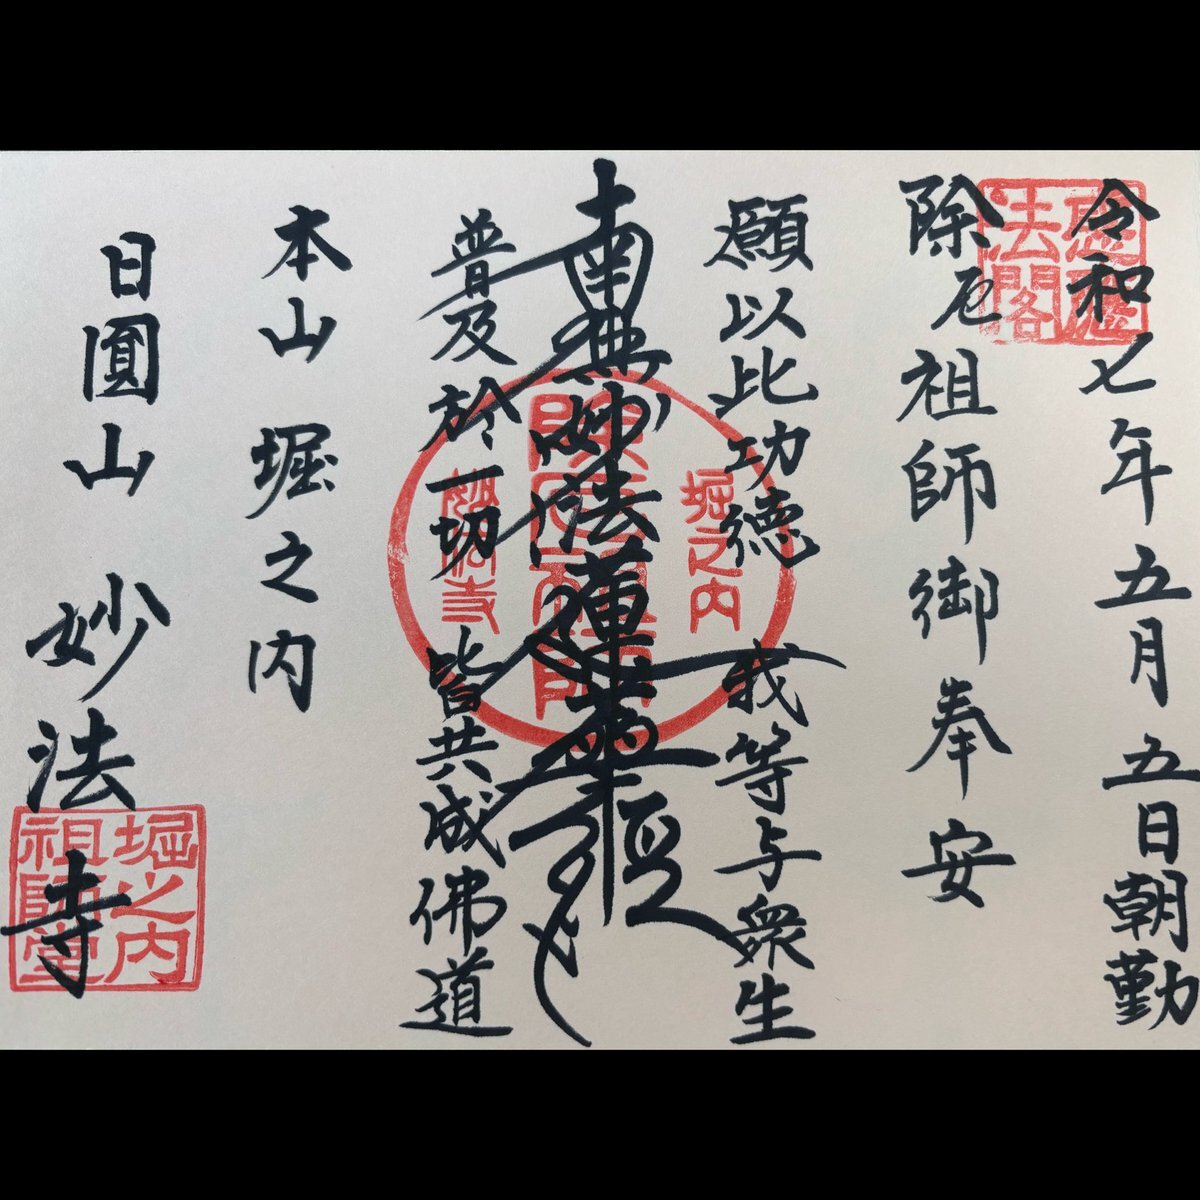 令和七年五月五日朝勤
除厄祖師御奉安
願以此功徳 我等与衆生
南無妙法蓮華経
普及於一切 皆共成佛道
本山 堀之内
日圓山 妙法寺
堀之内
除厄祖師
妙法寺
堀之内
祖師堂
法閣